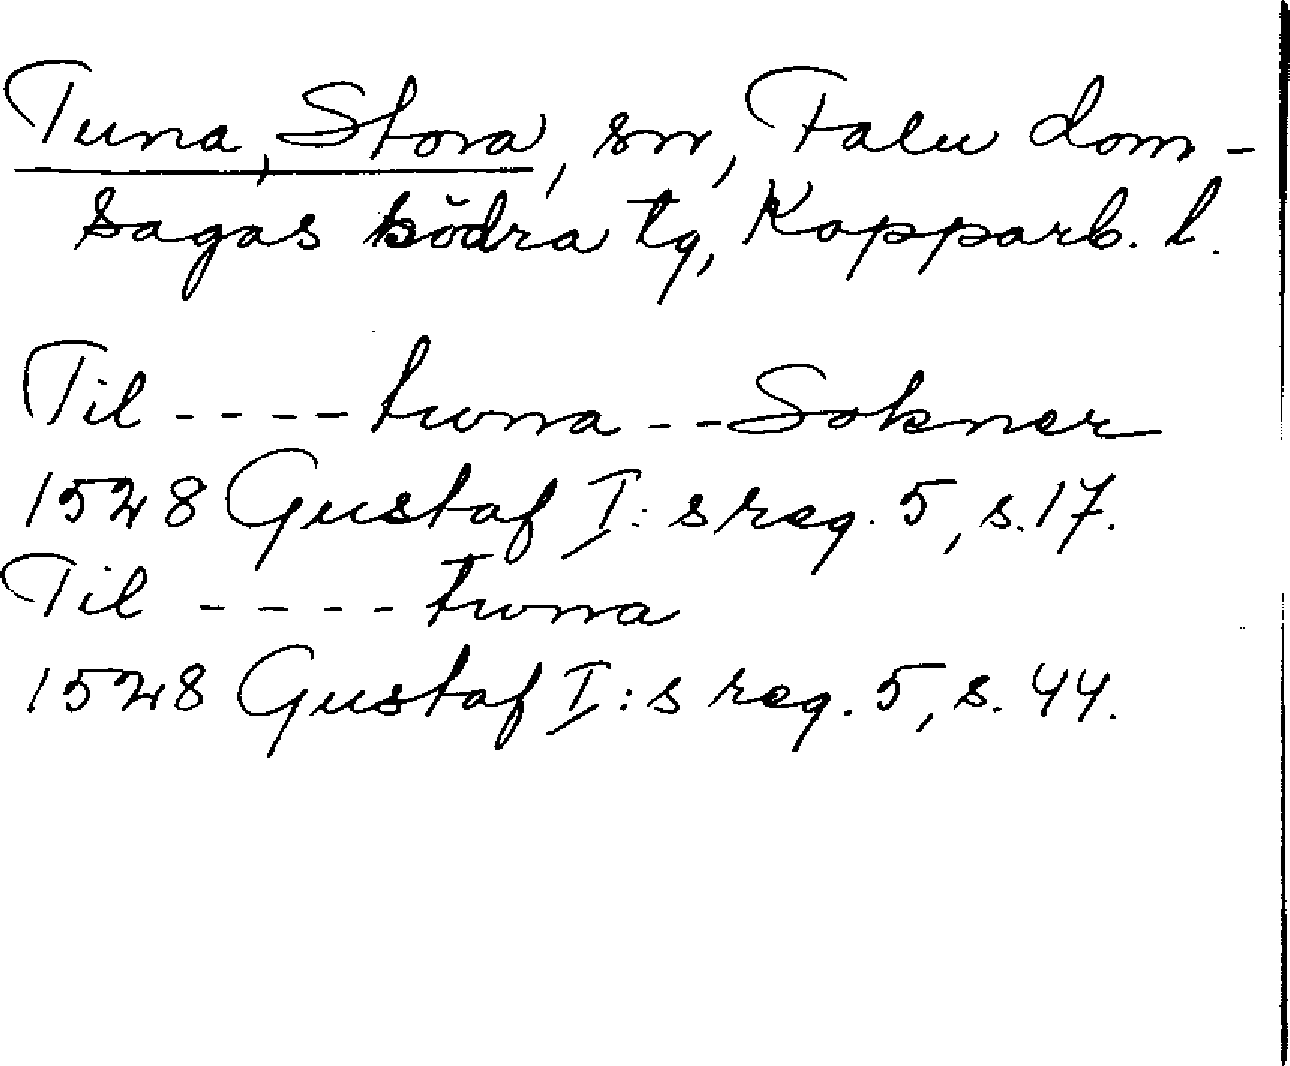 Tuna, Stora, sn, Falu dom-
sagas södra tg, Kopparb. l.
Til ---- twna -- Sokner
1528 Gustaf I:s reg. 5, s. 17.
Til ---- twna
1528 Gustaf I:s reg. 5, s. 44.